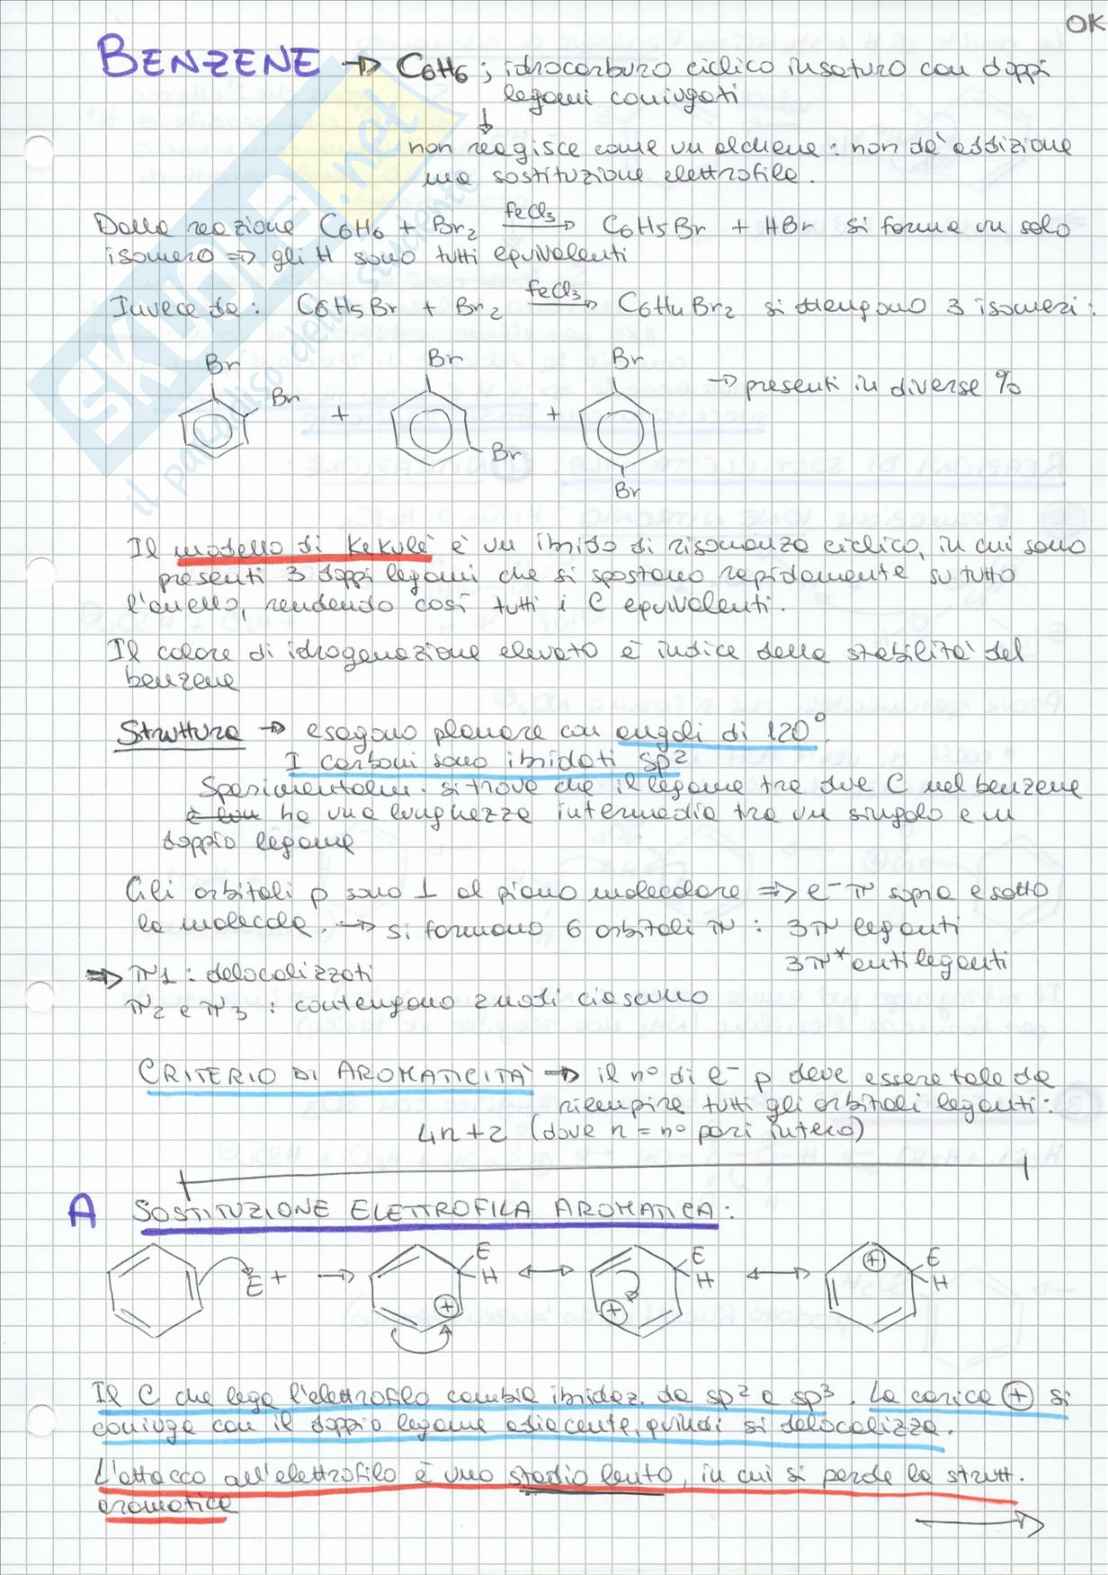 OK
BENZENE → C6H6; idrocarburo ciclico insaturo con doppi
legami coniugati
↓
non reagisce come un alchene: non dà addizione
ma sostituzione elettrofila.
Dalla reazione C6H6 + Br2 FeCl3→ C6H5Br + HBr si forma un solo
isomero ⇒ gli H sono tutti equivalenti
Invece da: C6H5Br + Br2 FeCl3→ C6H4Br2 si ottengono 3 isomeri:
Br Br + Br Br + Br Br → presenti in diverse %
Il modello di Kekulé è un ibrido di risonanza ciclico, in cui sono
presenti 3 doppi legami che si spostano rapidamente su tutto
l'anello, rendendo così tutti i C equivalenti.
Il calore di idrogenazione elevato è indice della stabilità del
benzene
Struttura → esagono planare con angoli di 120°.
I carboni sono ibridati sp2
Sperimentalm. si trova che il legame tra due C nel benzene
ha una lunghezza intermedia tra un singolo e un
doppio legame
Gli orbitali p sono ⊥ al piano molecolare ⇒ e- π sopra e sotto
la molecola. → si formano 6 orbitali π: 3π leganti
3π* antileganti
⇒ π1: delocalizzati
π2 e π3: contengono 2 nodi ciascuno
CRITERIO DI AROMATICITÀ → il n° di e- p deve essere tale da
riempire tutti gli orbitali leganti:
4n+2 (dove n = n° pari intero)
A SOSTITUZIONE ELETTROFILA AROMATICA:
E+ → E H + ↔ E H + ↔ + E H
Il C che lega l'elettrofilo cambia ibridaz. da sp2 a sp3. La carica + si
coniuga con il doppio legame adiacente, quindi si delocalizza.
L'attacco all'elettrofilo è uno stadio lento, in cui si perde la strutt.
aromatica
SKUOLA.net
il paradiso dello studente